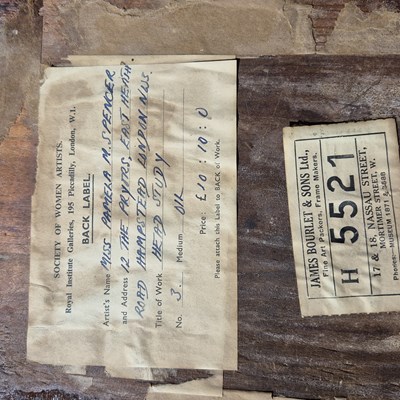 SOCIETY OF WOMEN ARTISTS.
Royal Institute Galleries, 195 Piccadilly, London, W.1.
BACK LABEL.
Artist's Name MISS PAMELA M. SPENCER
and Address 12 THE PRYORS, EAST HEATH
ROAD HAMPSTEAD LONDON NW3
Title of Work HEAD STUDY
No. 3. Medium OIL
Price £10:10:0
Please attach this Label to BACK of Work.
JAMES BOURLET & SONS Ltd.,
Fine Art Packers, Frame Makers,
H 5521
17 & 18, NASSAU STREET,
MORTIMER STREET, W.
Phones: MUSEUM 1871 & 7588